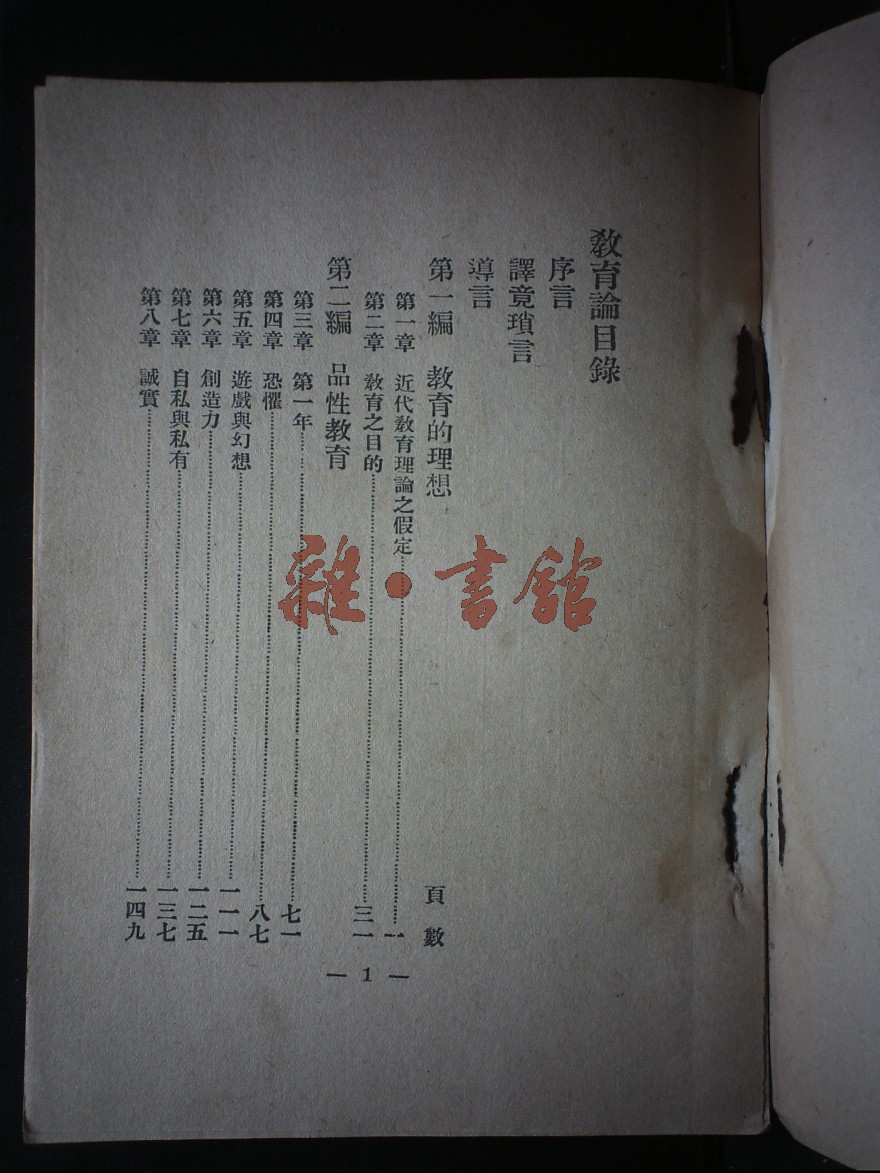 教育論目錄
序言
譯竟瑣言
導言
第一編 教育的理想 頁數
第一章 近代教育理論之假定 一
第二章 教育之目的 三一
第二編 品性教育
第三章 第一年 七一
第四章 恐懼 八七
第五章 遊戲與幻想 一一一
第六章 創造力 一二五
第七章 自私與私有 一三七
第八章 誠實 一四九
— 1 —
雜·書館